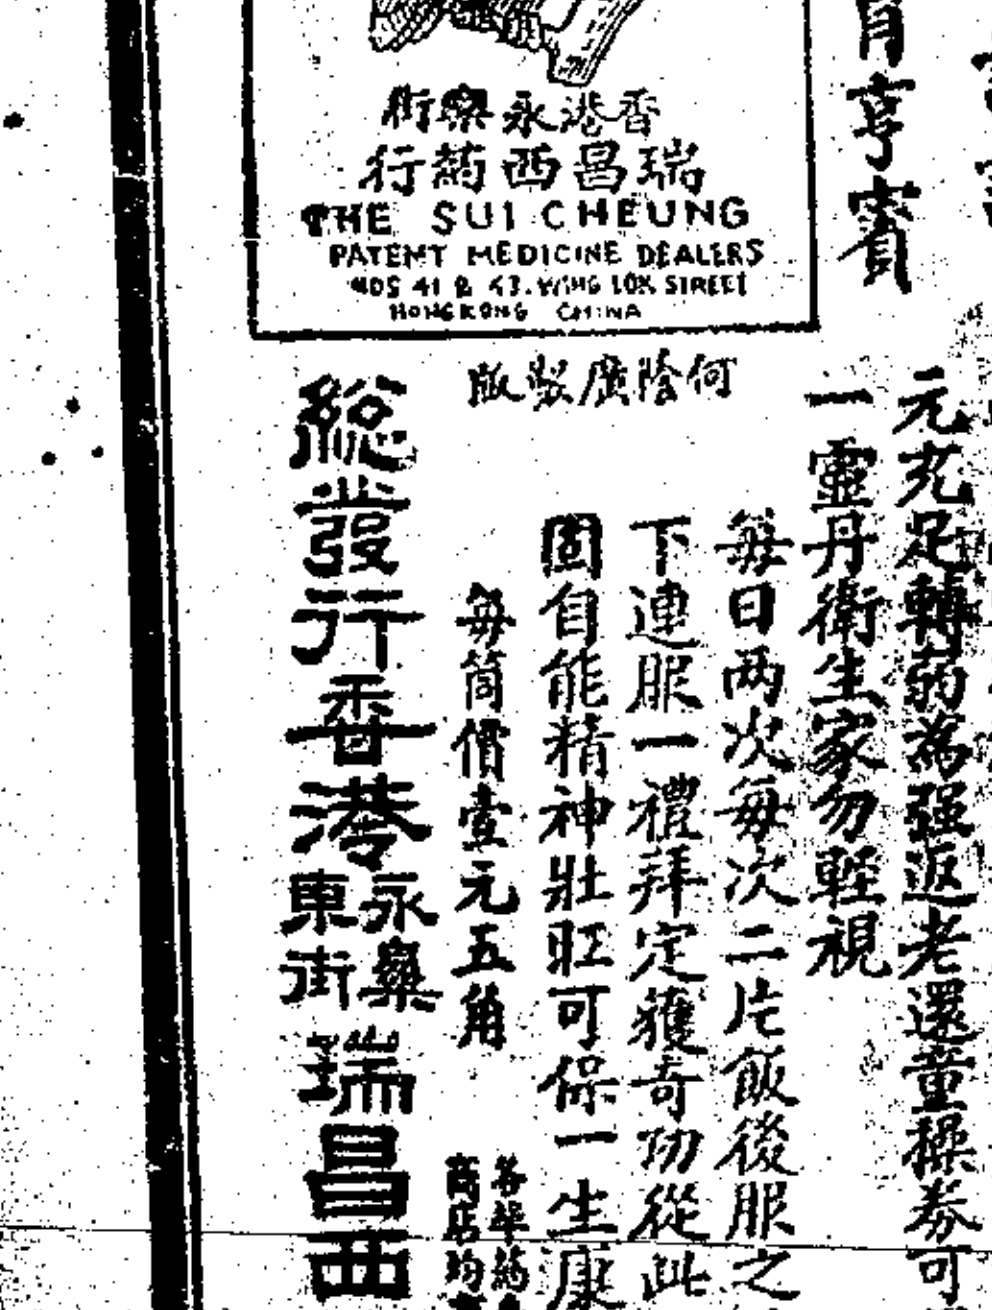 香港永樂街
瑞昌西葯行
THE SUI CHEUNG
PATENT MEDICINE DEALERS
NOS 41 & 43. WING LOK STREET
HONGKONG CHINA
何陰廣製版
元充足轉弱為强返老還童操券可
一靈丹衛生家勿輕視
每日两次每次二片飯後服之
下連服一禮拜定獲奇功從此
固自能精神壯旺可保一生康
每筒價壹元五角
各埠葯
商店均
總發行香港永樂東街瑞昌西